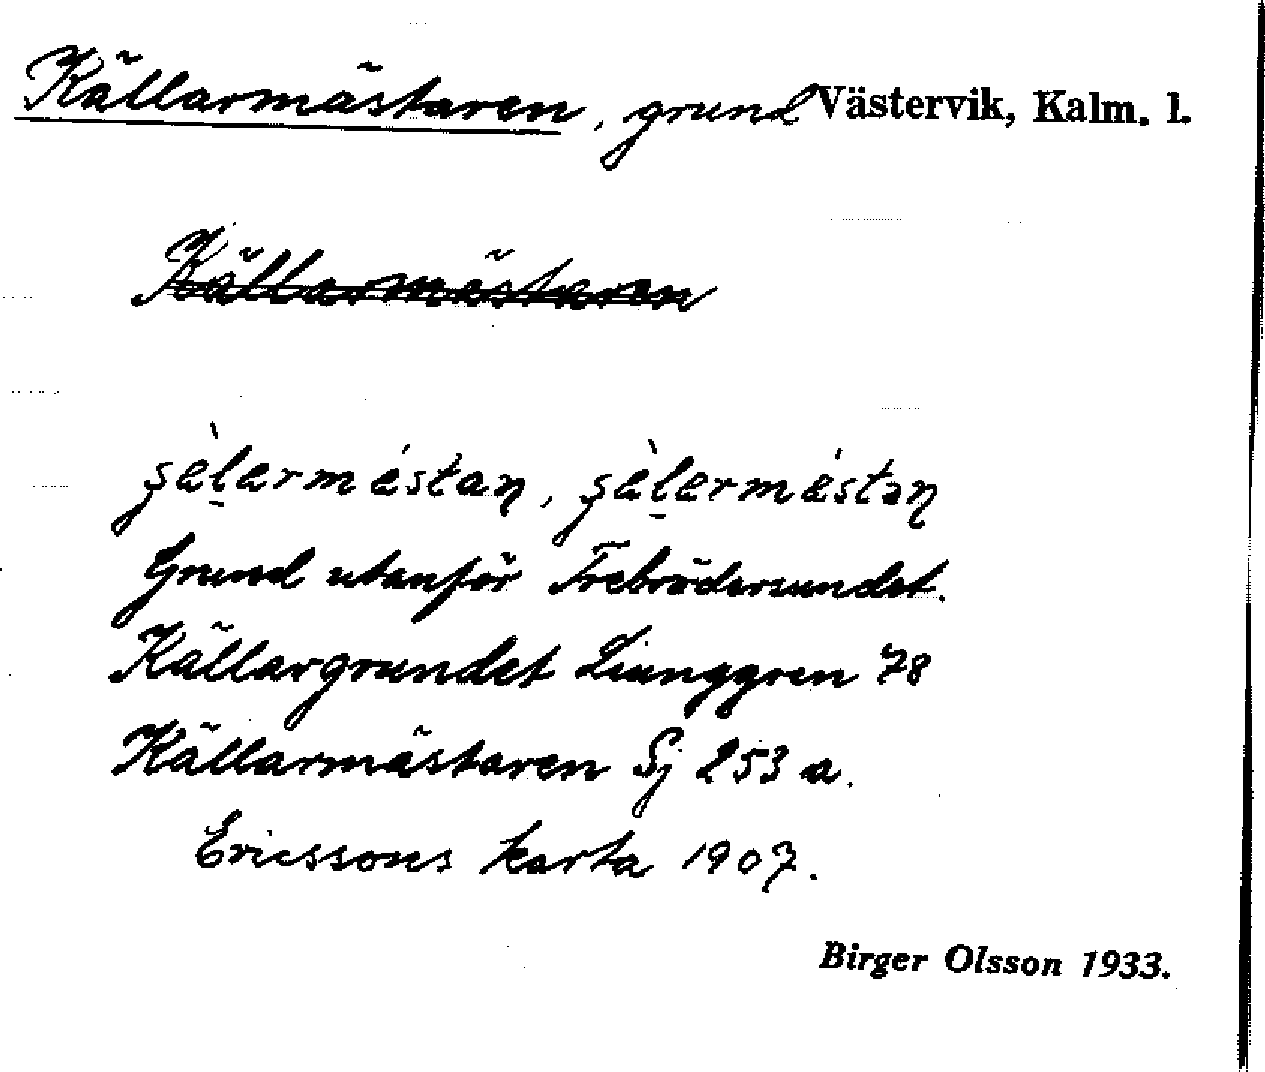 Källarmästaren, grund Västervik, Kalm. l.
Källarmästaren
şèlerméstan, şèlerméstən
Grund utanför Trebrödersundet.
Källargrundet Ljunggren 78
Källarmästaren Sj 253 a.
Ericssons karta 1907.
Birger Olsson 1933.